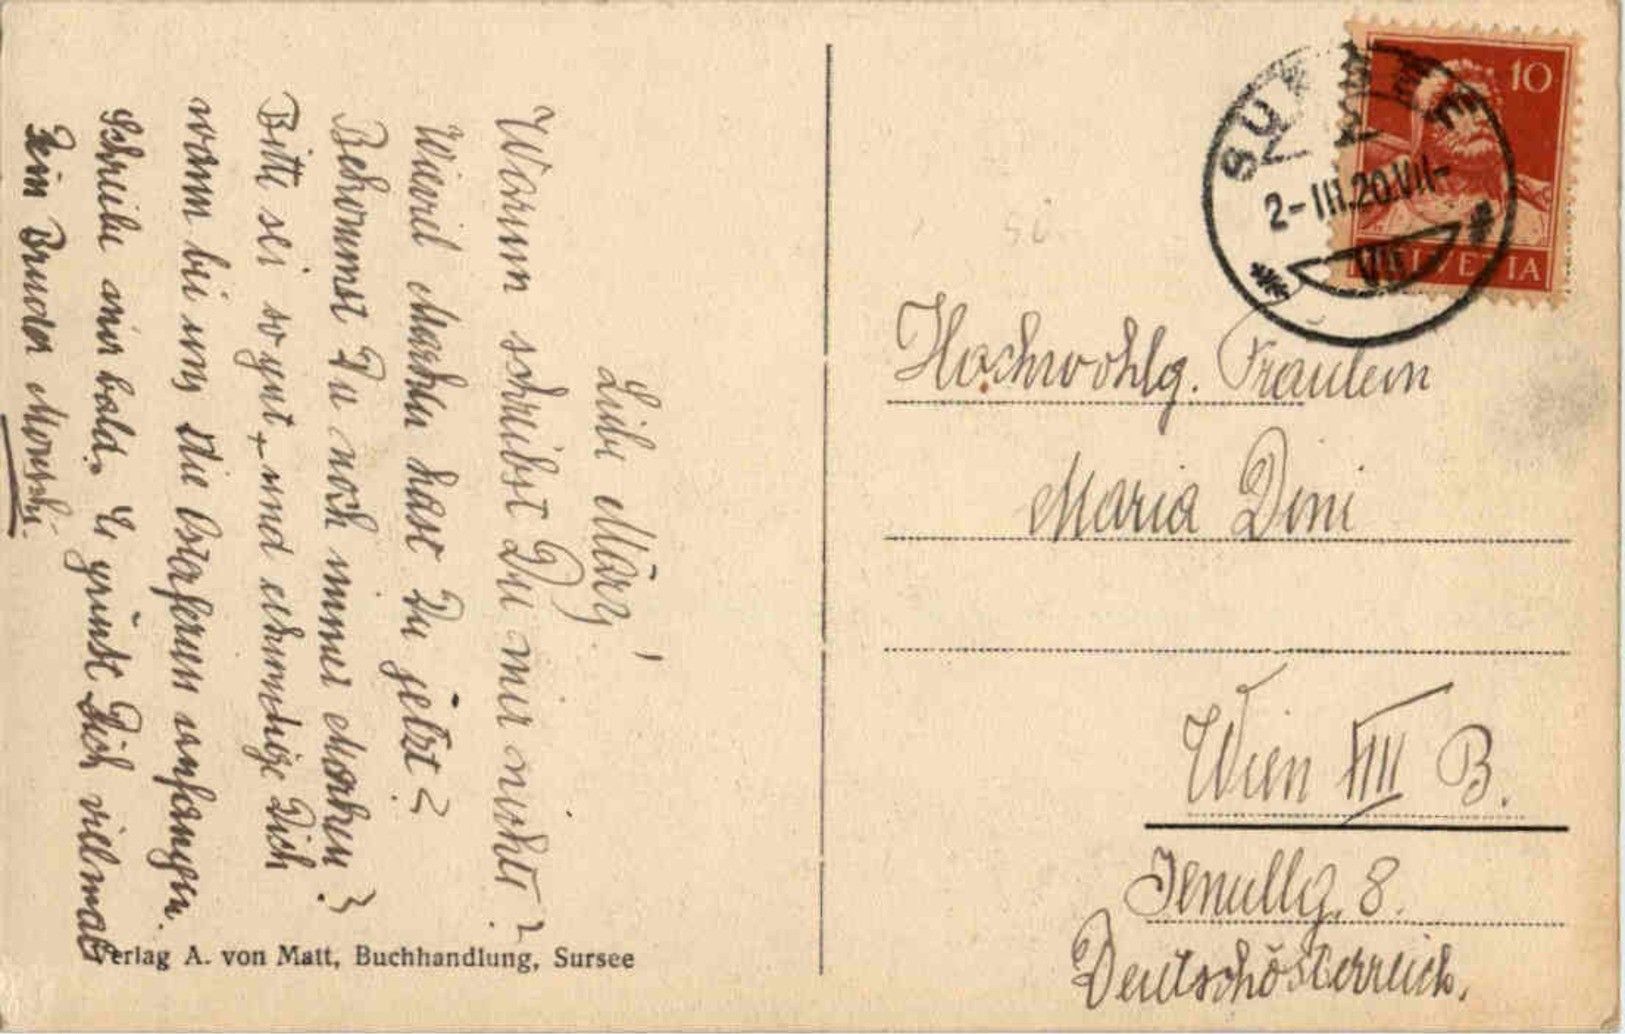 Liebe Märy!
Warum schreibst Du mir nicht?
Wieviel Marken hast Du jetzt?
Bekommst Du noch immer Marken?
Bitte sei so gut und erkundige Dich
wann bei uns die Osterferien anfangen.
Schreibe mir bald. Es grüsst Dich vielmals
Dein Bruder
Verlag A. von Matt, Buchhandlung, Sursee
10
HELVETIA
SURSEE
2-III.20.VII-
VII
Hochwohlg. Fraulein
Maria Dini
Wien XIII B.
Jenullg. 8.
Deutschösterreich.